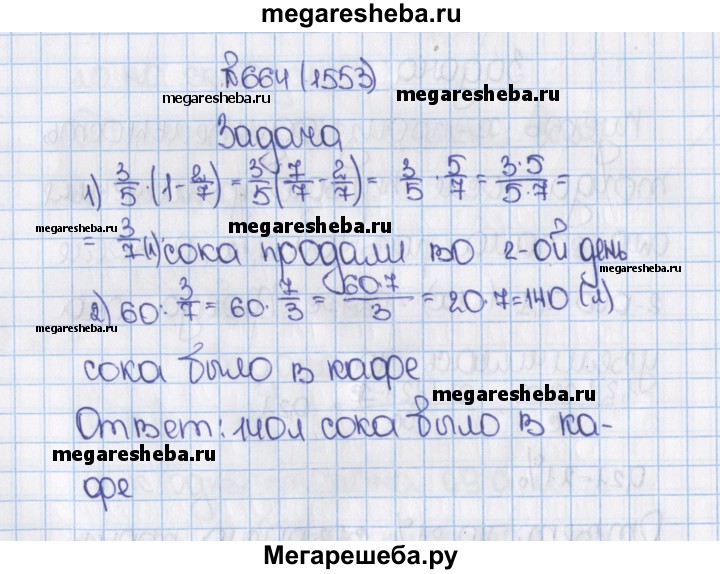 megaresheba.ru
№664 (1553)
megaresheba.ru
megaresheba.ru
Задача
1) 3/5 · (1 - 2/7) = 3/5 (7/7 - 2/7) = 3/5 · 5/7 = 3·5/5·7 =
megaresheba.ru
megaresheba.ru
= 3/7 (л) сока продали во 2-ой день
megaresheba.ru
2) 60 : 3/7 = 60 · 7/3 = 60·7/3 = 20·7=140 (л)
megaresheba.ru
сока было в кафе
megaresheba.ru
Ответ: 140л сока было в ка-
megaresheba.ru
фе
Мегарешеба.ру